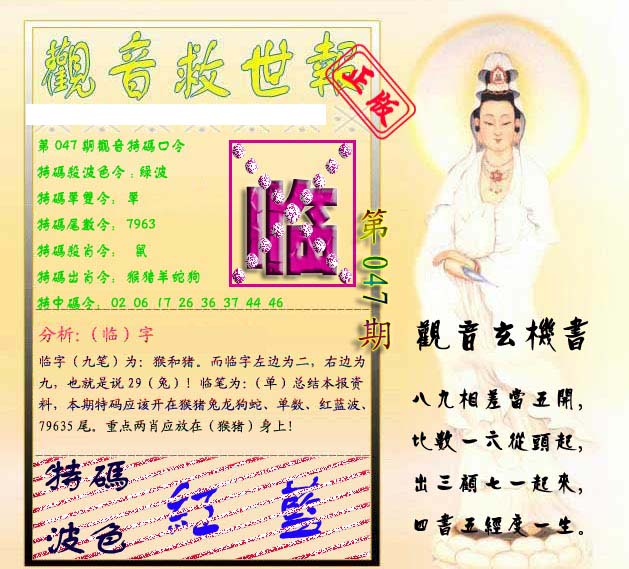 觀音救世報
正版
第047期觀音特碼口令
特碼殺波色令:綠波
特碼單雙令: 單
特碼尾數令: 7963
特碼殺肖令: 鼠
特碼出肖令: 猴猪羊蛇狗
特中碼令: 02 06 17 26 36 37 44 46
临
第047期
分析:(临)字
临字（九笔）为：猴和猪。而临字左边为二，右边为
九，也就是说29（兔）！临笔为：（单）总结本报资
料，本期特码应该开在猴猪兔龙狗蛇、单数、红蓝波、
79635尾。重点两肖应放在（猴猪）身上！
特碼
波色
紅 藍
觀音玄機書
八九相差當五開，
比數一六從頭起，
出三顧七一起來，
四書五經度一生。